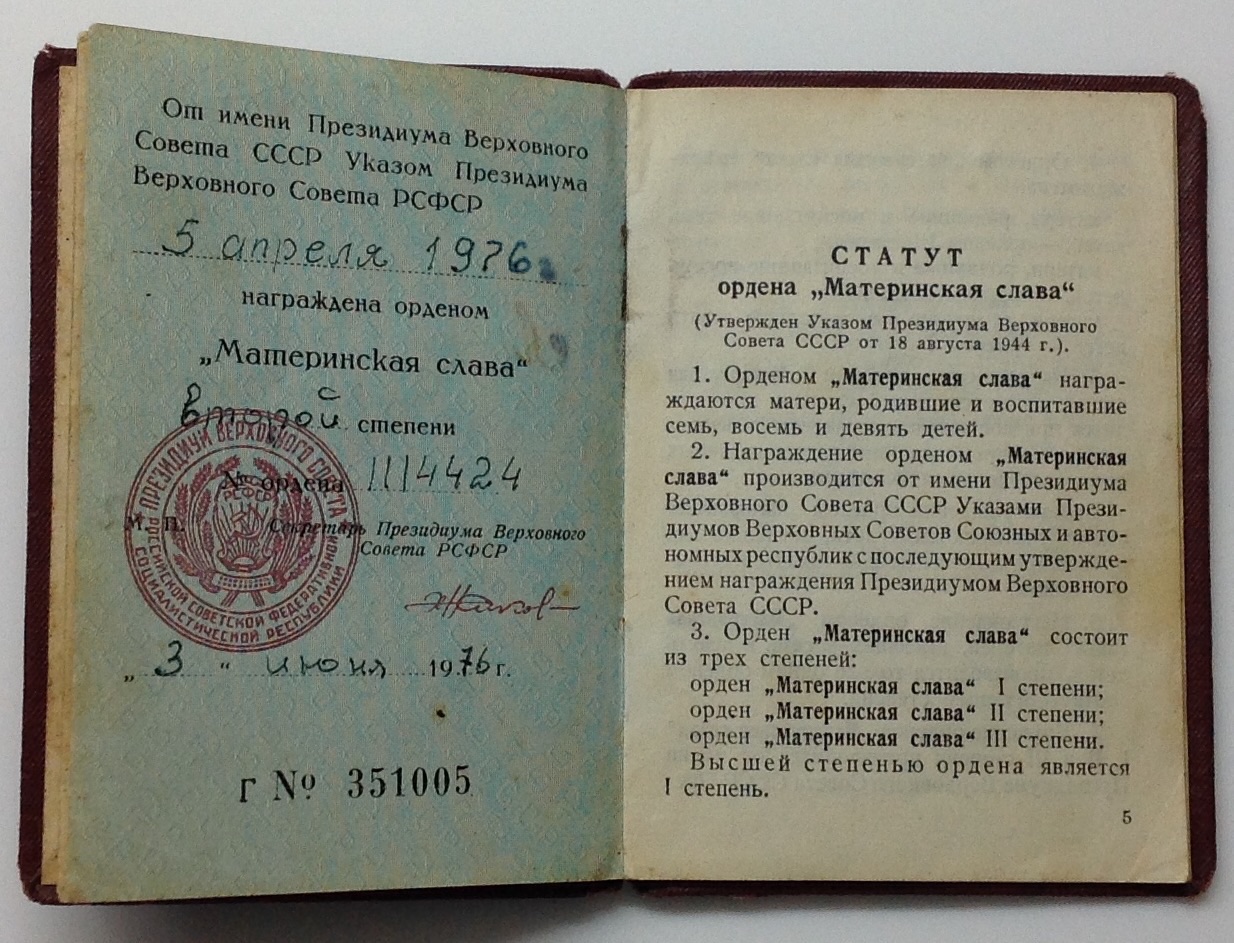 От имени Президиума Верховного
Совета СССР Указом Президиума
Верховного Совета РСФСР
5 апреля 1976 г.
награждена орденом
„Материнская слава“
второй степени
№ ордена 1114424
М. П.
Секретарь Президиума Верховного
Совета РСФСР
ПРЕЗИДИУМ ВЕРХОВНОГО СОВЕТА
РОССИЙСКОЙ СОВЕТСКОЙ ФЕДЕРАТИВНОЙ
СОЦИАЛИСТИЧЕСКОЙ РЕСПУБЛИКИ
РСФСР
„ 3 “ июня 1976 г.
Г № 351005
СТАТУТ
ордена „Материнская слава“
(Утвержден Указом Президиума Верховного
Совета СССР от 18 августа 1944 г.).
1. Орденом „Материнская слава“ награ-
ждаются матери, родившие и воспитавшие
семь, восемь и девять детей.
2. Награждение орденом „Материнская
слава“ производится от имени Президиума
Верховного Совета СССР Указами Прези-
диумов Верховных Советов Союзных и авто-
номных республик с последующим утвержде-
нием награждения Президиумом Верховного
Совета СССР.
3. Орден „Материнская слава“ состоит
из трех степеней:
орден „Материнская слава“ I степени;
орден „Материнская слава“ II степени;
орден „Материнская слава“ III степени.
Высшей степенью ордена является
I степень.
5